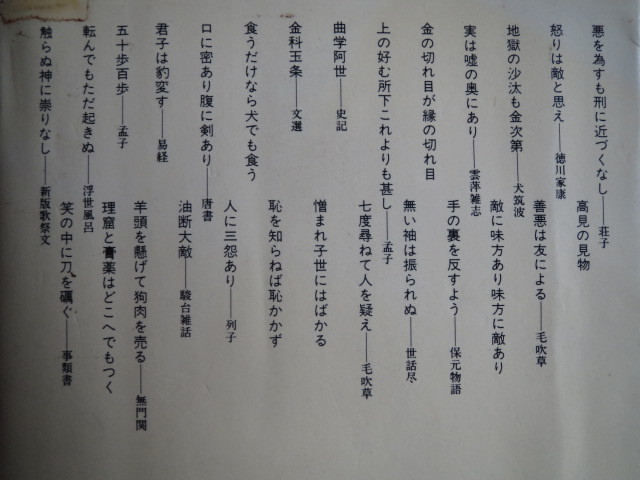 悪を為すも刑に近づくなし――荘子
高見の見物
怒りは敵と思え――徳川家康
善悪は友による――毛吹草
地獄の沙汰も金次第――犬筑波
敵に味方あり味方に敵あり
実は嘘の奥にあり――雲萍雑志
手の裏を反すよう――保元物語
金の切れ目が縁の切れ目
無い袖は振られぬ――世話尽
上の好む所下これよりも甚し――孟子
七度尋ねて人を疑え――毛吹草
曲学阿世――史記
憎まれ子世にはばかる
金科玉条――文選
恥を知らねば恥かかず
食うだけなら犬でも食う
人に三怨あり――列子
口に密あり腹に剣あり――唐書
油断大敵――駿台雑話
君子は豹変す――易経
羊頭を懸げて狗肉を売る――無門関
五十歩百歩――孟子
理窟と膏薬はどこへでもつく
転んでもただ起きぬ――浮世風呂
笑の中に刀を礪ぐ――事類書
触らぬ神に崇りなし――新版歌祭文